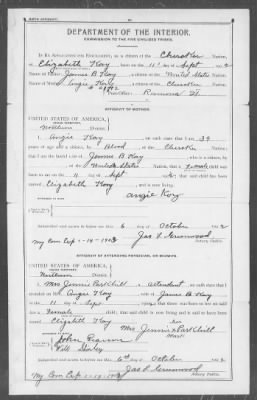 BIRTH AFFIDAVIT.
DEPARTMENT OF THE INTERIOR.
COMMISSION TO THE FIVE CIVILIZED TRIBES.
IN RE APPLICATION FOR ENROLLMENT, as a citizen of the Cherokee Nation,
of Elizabeth Kay, born on the 11 day of Sept, 2
Name of Father: James B Kay a citizen of the United States Nation.
Name of Mother: Angie Kay a citizen of the Cherokee Nation.
Postoffice Ramona
AFFIDAVIT OF MOTHER.
UNITED STATES OF AMERICA,
INDIAN TERRITORY,
Northern District.
I, Angie Kay, on oath state that I am 39
years of age and a citizen, by Blood of the Cherokee Nation;
that I am the lawful wife of James B Kay, who is a citizen, by
of the United States Nation; that a Female child was
born to me on the 11 day of Sept, 2; that said child has been
named Elizabeth Kay, and is now living.
Angie Kay
Subscribed and sworn to before me this 6 day of October, 2
Jas S. Greenwood
My Com Exp 1-14-1903
Notary Public.
AFFIDAVIT OF ATTENDING PHYSICIAN, OR MIDWIFE.
UNITED STATES OF AMERICA,
INDIAN TERRITORY,
Northern District.
I, Mrs Jennie Parkhill, a attendant, on oath state that I
attended on Mrs. Angie Kay, wife of James B Kay on the
11 day of Sept; that there was born to her on said
date a Female child; that said child is now living and is said to have been
named Elizabeth Kay
Mrs Jennie x Parkhill
her
mark
John
Will
Subscribed and sworn to before me this 6th day of October, 2
Jas S. Greenwood
Notary Public.
My Com Exp